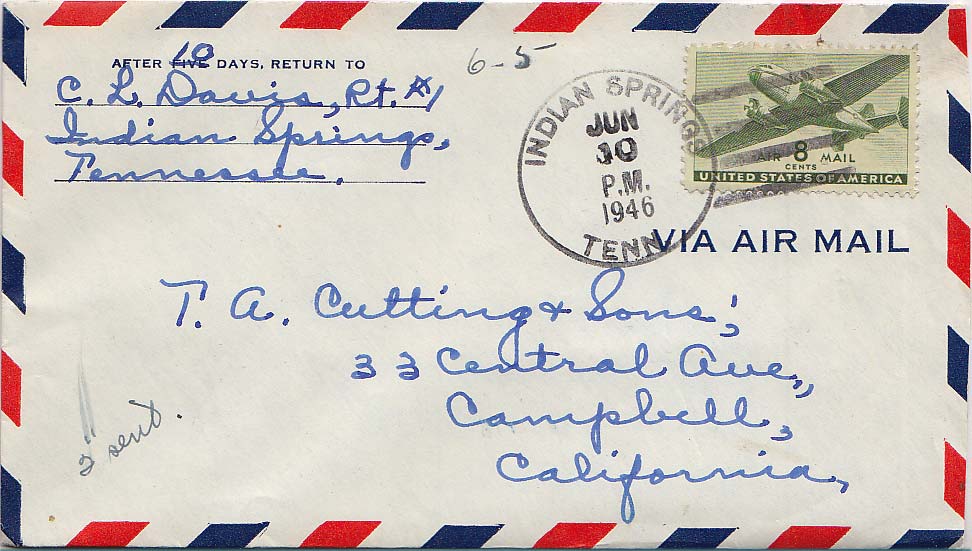 AFTER FIVE 10 DAYS, RETURN TO
C. L. Davis, Rt. #1
Indian Springs,
Tennessee.
6-5
INDIAN SPRINGS
JUN
P.M.
1946
TENN.
AIR 8 MAIL
CENTS
UNITED STATES OF AMERICA
VIA AIR MAIL
T. A. Cutting & Sons',
33 Central Ave.,
Campbell,
California,
sent.